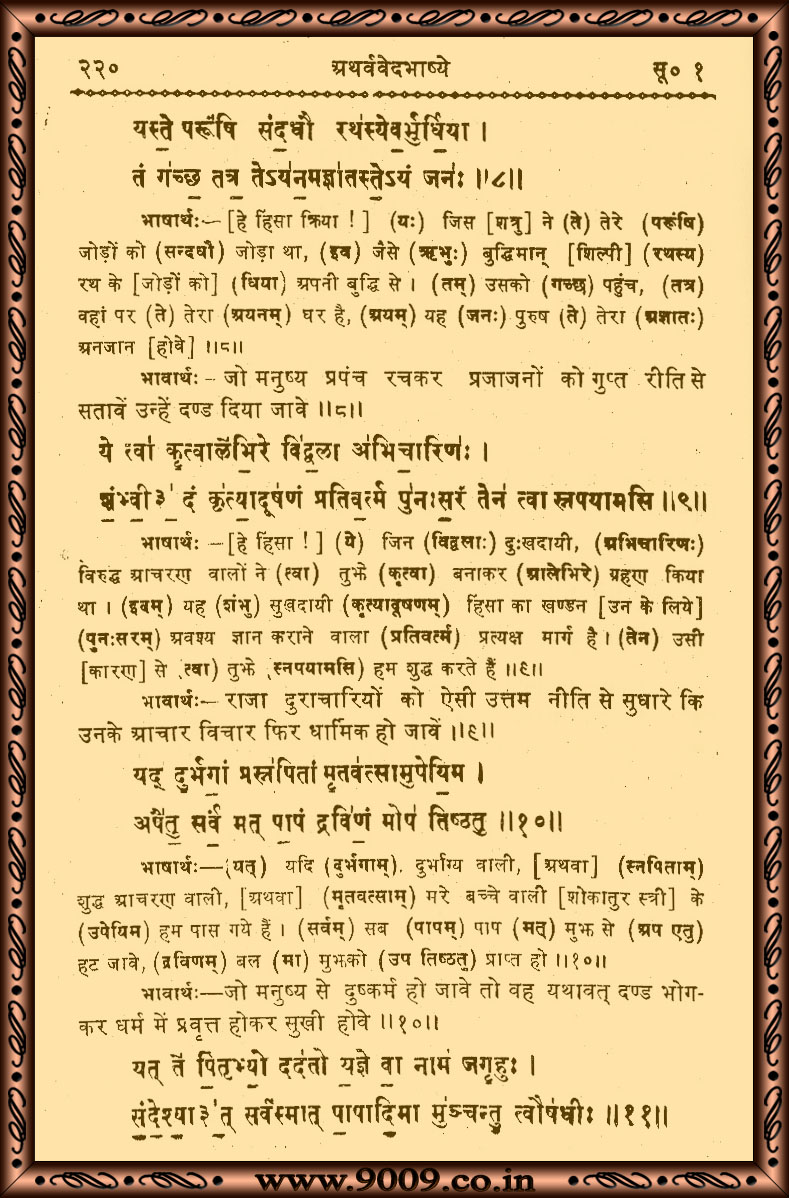 २२० अथर्ववेदभाष्ये सू० १
यस्ते॒ परूं॑षि संद॒धौ रथ॑स्येव॒र्भुर्धि॒या ।
तं ग॑च्छ॒ तत्र॒ तेऽय॑न॒मज्ञा॑तस्ते॒ऽयं जनः॑ ॥८॥
भाषार्थः—[हे हिंसा क्रिया !] (यः) जिस [शत्रु] ने (ते) तेरे (परूंषि)
जोड़ों को (सन्दधौ) जोड़ा था, (इव) जैसे (ऋभुः) बुद्धिमान् [शिल्पी] (रथस्य)
रथ के [जोड़ों को] (धिया) अपनी बुद्धि से । (तम्) उसको (गच्छ) पहुंच, (तत्र)
वहां पर (ते) तेरा (अयनम्) घर है, (अयम्) यह (जनः) पुरुष (ते) तेरा (अज्ञातः)
अनजान [होवे] ॥८॥
भावार्थः - जो मनुष्य प्रपंच रचकर प्रजाजनों को गुप्त रीति से
सतावें उन्हें दण्ड दिया जावे ॥८॥
ये त्वा॑ कृ॒त्वाले॑भि॒रे वि॑द्व॒ला अ॑भिचा॒रिणः॑ ।
शं॒भ्वी॒३॑ दं कृ॑त्या॒दूष॑णं प्रतिव॒र्त्म पु॑नःस॒रं तेन॑ त्वा स्नपयामसि ॥९॥
भाषार्थः —[हे हिंसा !] (ये) जिन (विद्वलाः) दुःखदायी, (अभिचारिणः)
विरुद्ध आचरण वालों ने (त्वा) तुझे (कृत्वा) बनाकर (आलेभिरे) ग्रहण किया
था । (इदम्) यह (शंभु) सुखदायी (कृत्यादूषणम्) हिंसा का खण्डन [उन के लिये]
(पुनःसरम्) अवश्य ज्ञान कराने वाला (प्रतिवर्त्म) प्रत्यक्ष मार्ग है । (तेन) उसी
[कारण] से (त्वा) तुझे (स्नपयामसि) हम शुद्ध करते हैं ॥९॥
भावार्थः— राजा दुराचारियों को ऐसी उत्तम नीति से सुधारे कि
उनके आचार विचार फिर धार्मिक हो जावें ॥९॥
यद् दु॒र्भगां॒ प्रस्न॑पितां मृ॒तव॑त्सामुपेयि॒म ।
अपै॑तु॒ सर्वं॒ मत् पा॒पं द्रवि॑णं॒ मोप॑ तिष्ठतु॒ ॥१०॥
भाषार्थः—(यत्) यदि (दुर्भगाम्). दुर्भाग्य वाली, [अथवा] (स्नपिताम्)
शुद्ध आचरण वाली, [अथवा] (मृतवत्साम्) मरे बच्चे वाली [शोकातुर स्त्री] के
(उपेयिम) हम पास गये हैं । (सर्वम्) सब (पापम्) पाप (मत्) मुझ से (अप एतु)
हट जावे, (द्रविणम्) बल (मा) मुझको (उप तिष्ठतु) प्राप्त हो ॥१०॥
भावार्थः—जो मनुष्य से दुष्कर्म हो जावे तो वह यथावत् दण्ड भोग-
कर धर्म में प्रवृत्त होकर सुखी होवे ॥१०॥
यत् ते॑ पि॒तृभ्यो॒ दद॑तो य॒ज्ञे वा॒ नाम॑ जगृ॒हुः ।
सं॒दे॒श्या॒३॑त् सर्व॑स्मात् पा॒पादि॒मा मु॑ञ्चन्तु॒ त्वौष॑धीः ॥११॥
www.9009.co.in